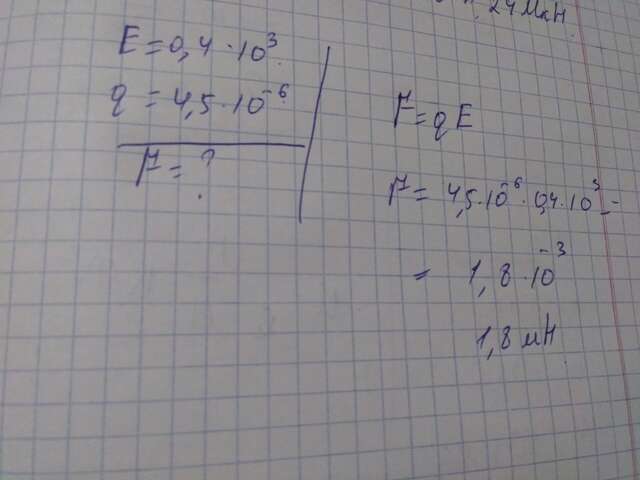 24 мкН
E = 0,4 · 10³
q = 4,5 · 10⁻⁶
F = ?
F = qE
F = 4,5 · 10⁻⁶ · 0,4 · 10³ =
= 1,8 · 10⁻³
1,8 мН